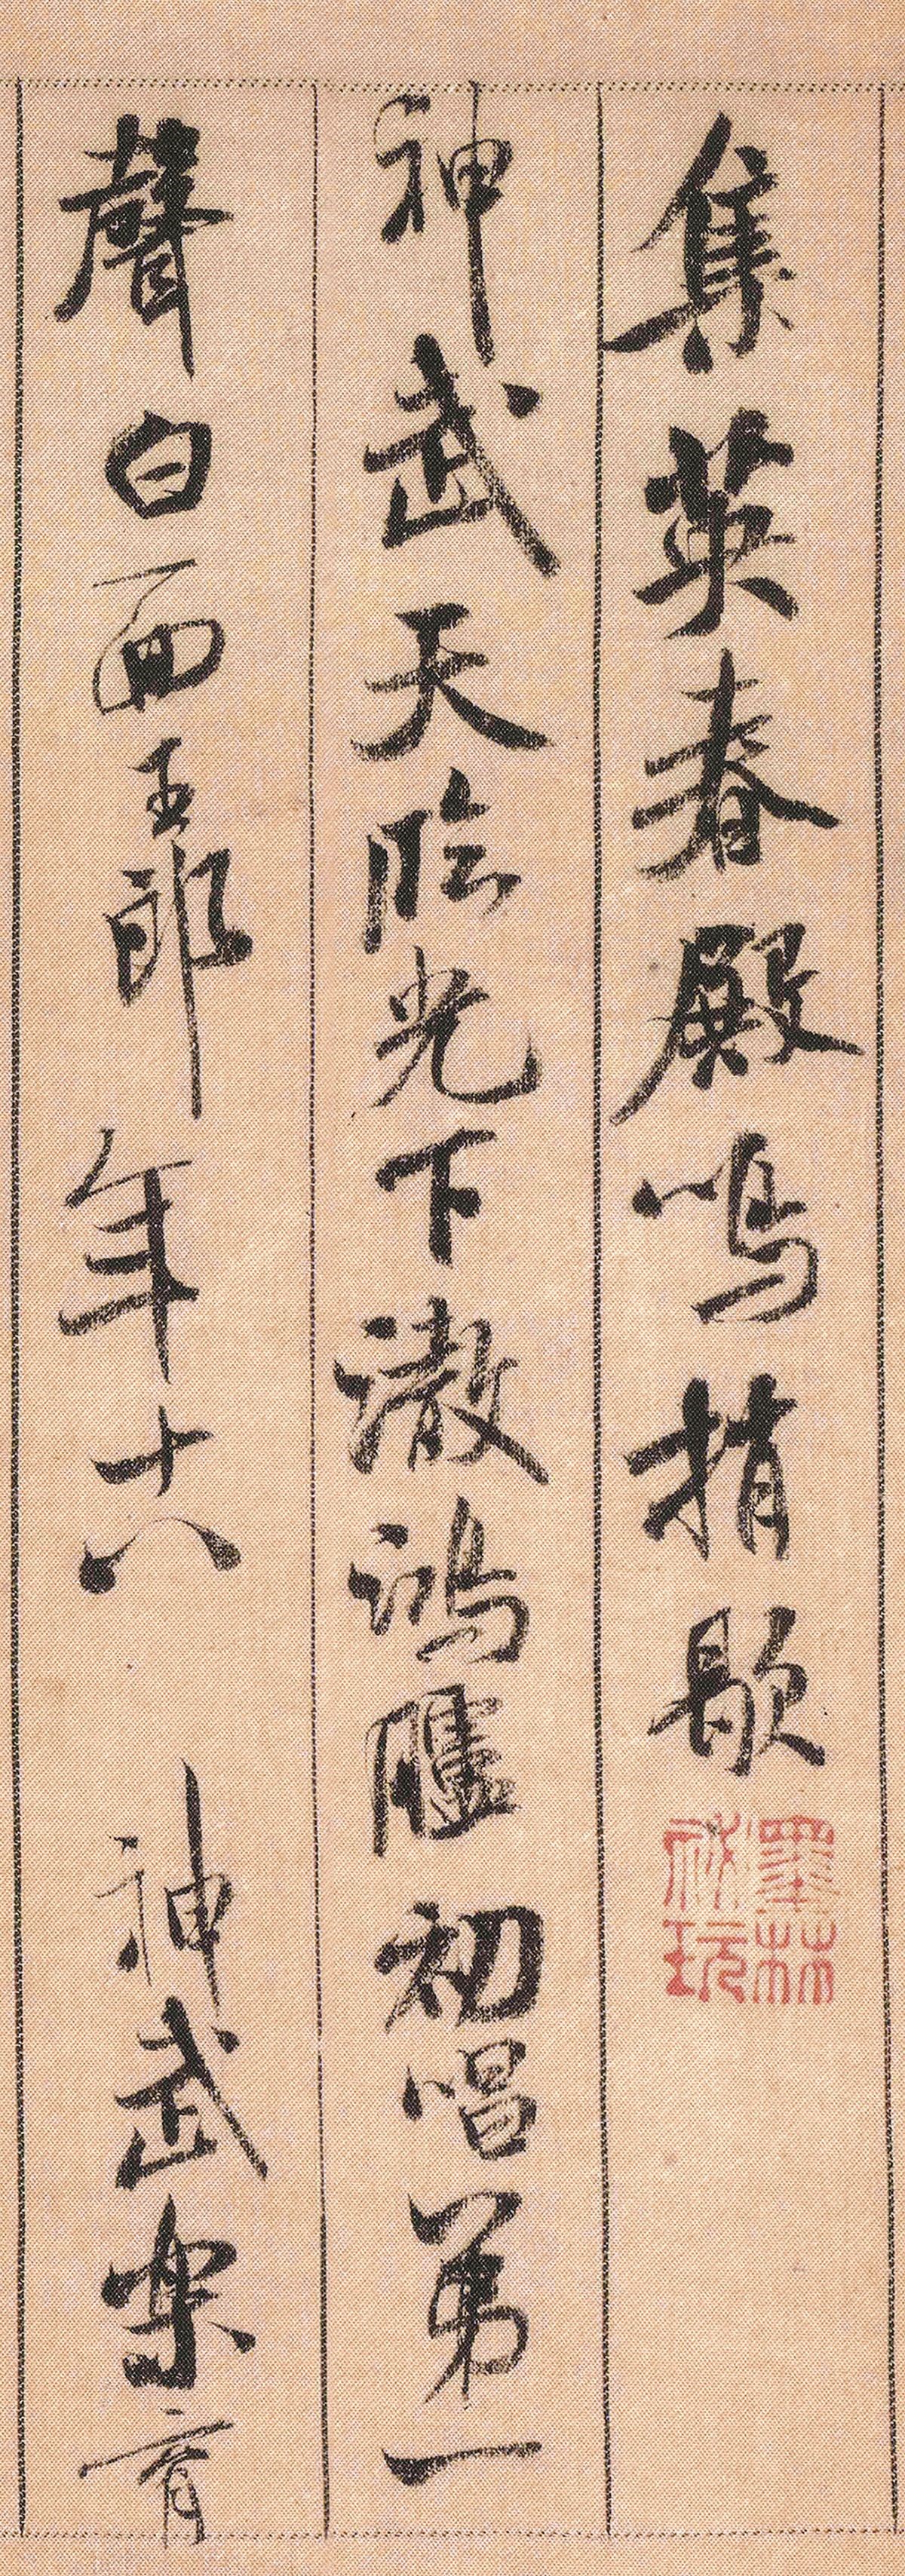 集英春殿鳴捎歇
墨林祕玩
神武天臨光下澈鴻臚初唱第一
聲白面玉郎年十八 神武樂育